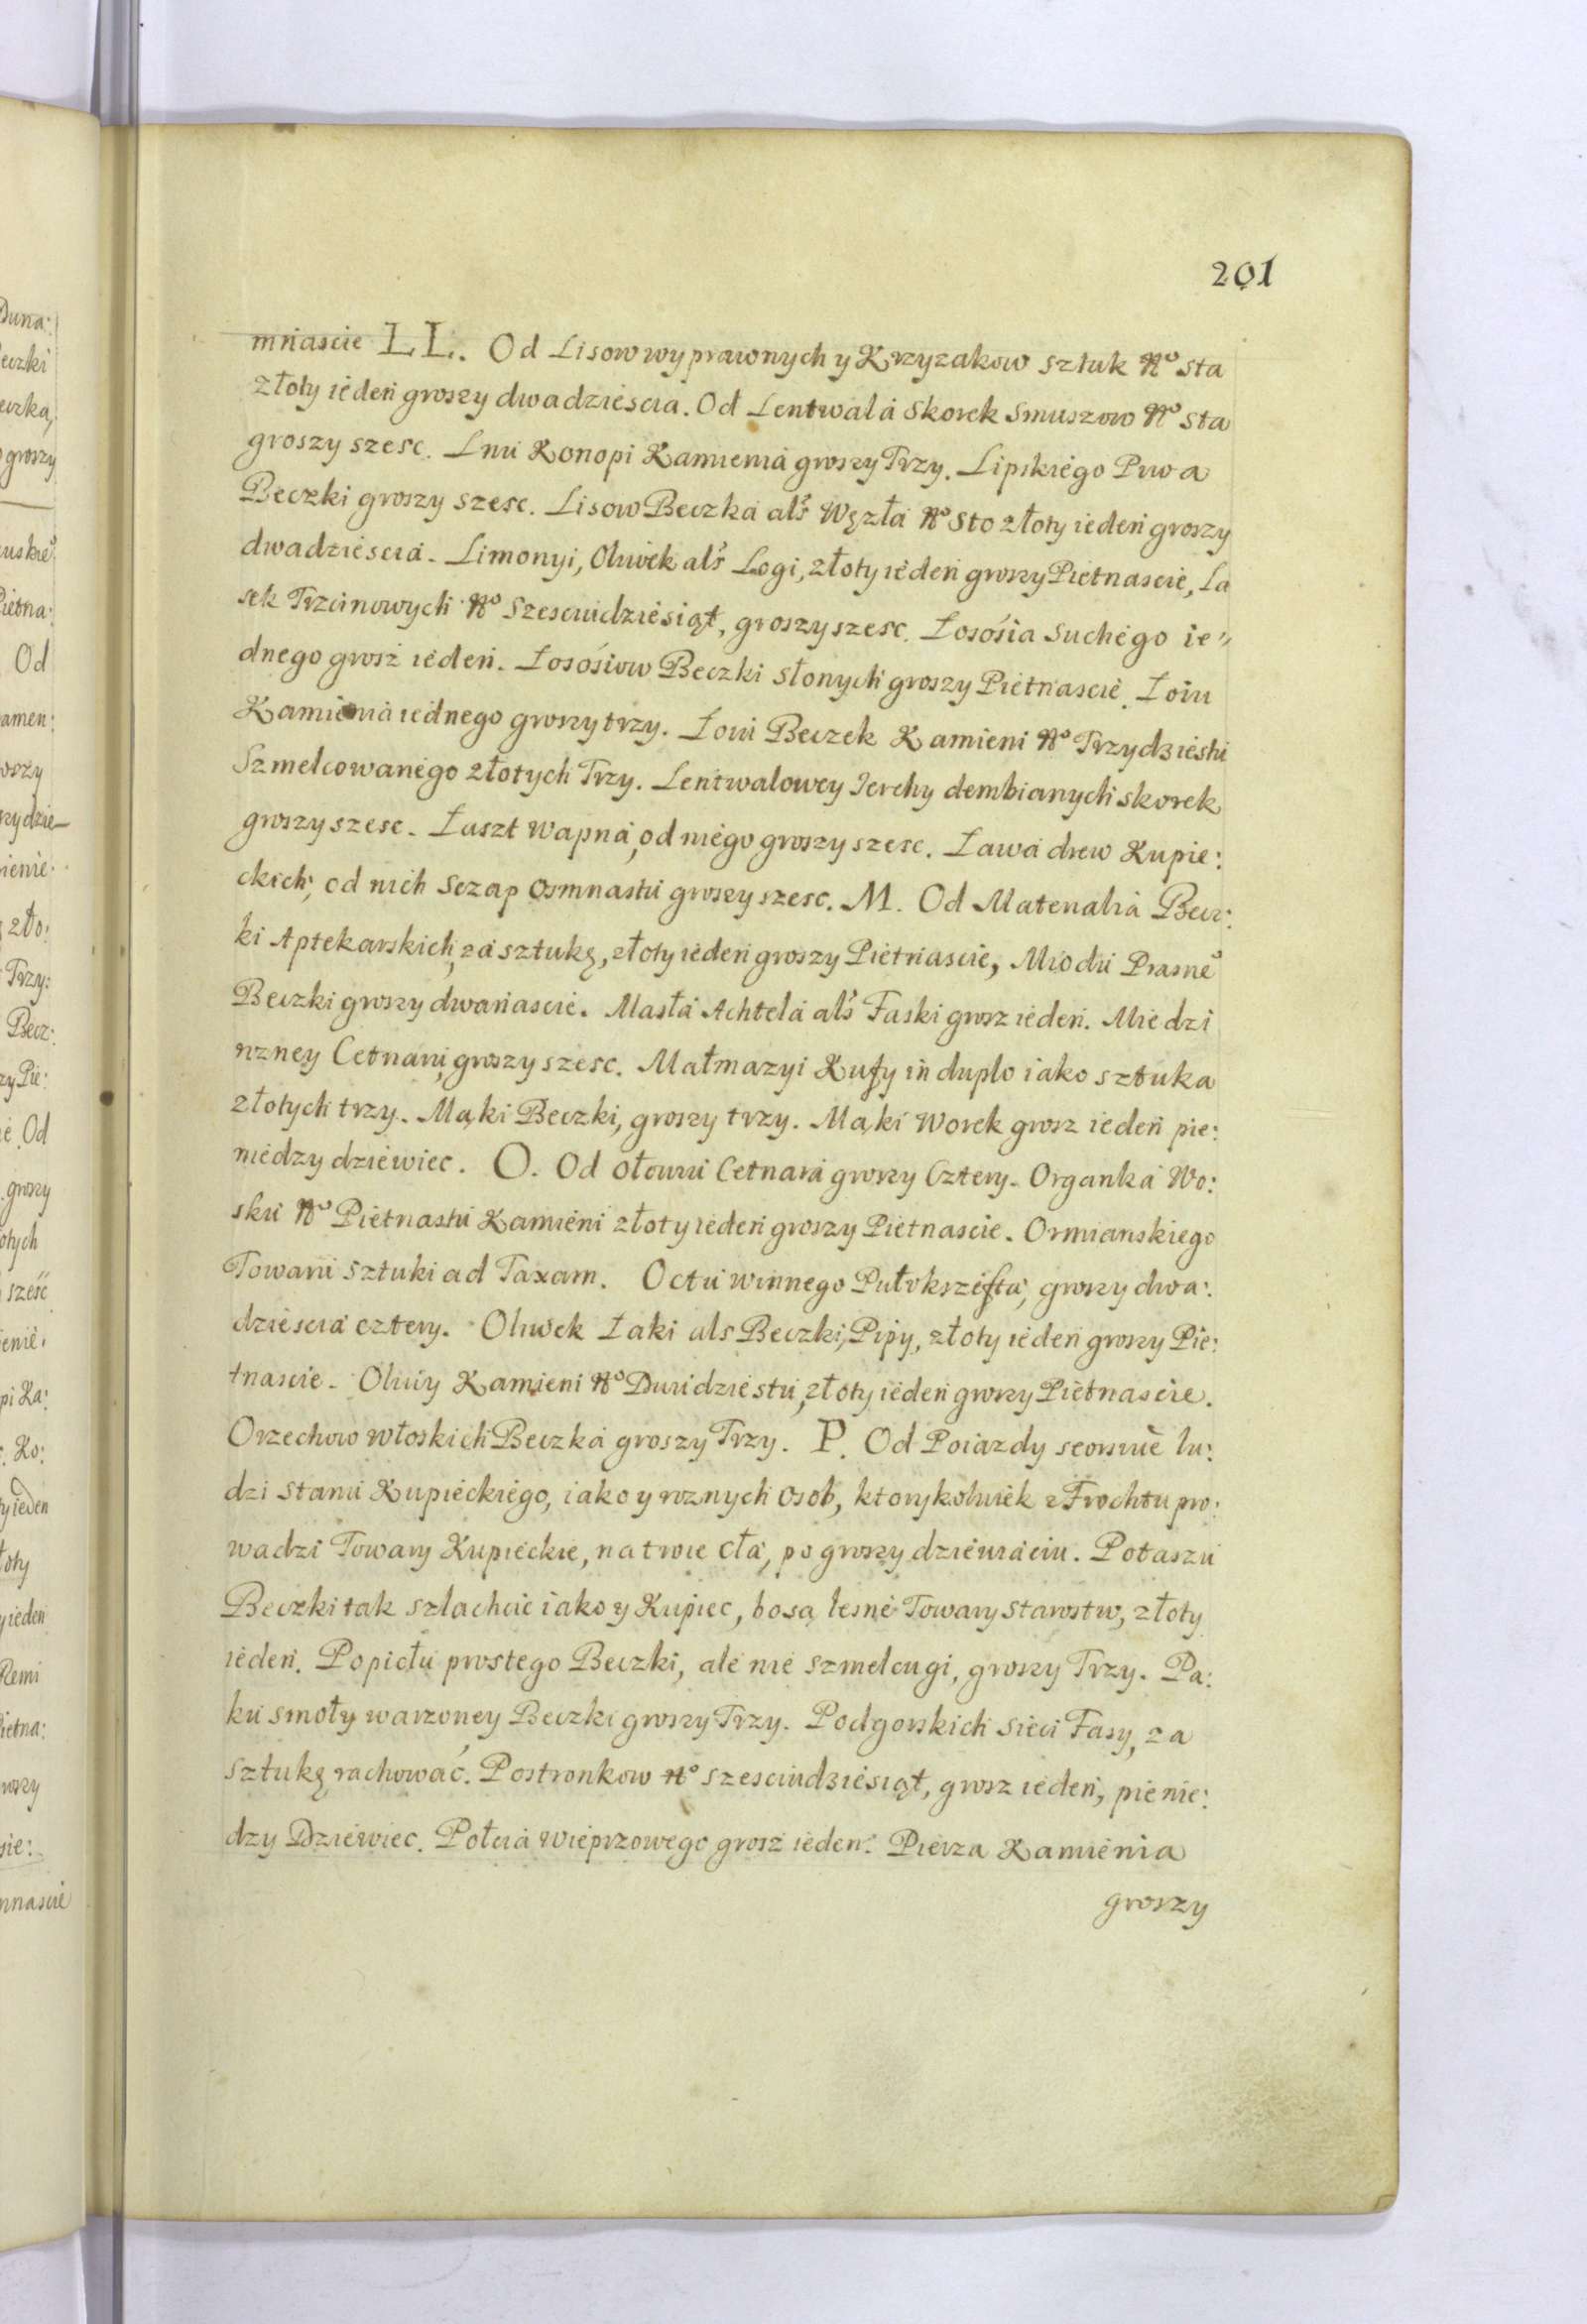 201
mnascie LL. Od Lisow wyprawonych y Krzyzakow sztuk No sta
złoty ieden groszy dwadziescia. Od Lentwala Skorek Smuszow No sta
groszy szesc. Lnu Konopi Kamienia groszy Trzy. Lipskiego Piwa
Beczki groszy szesc. Lisow Beczka als Węzła No Sto złoty ieden groszy
dwadziescia. Limonyi, Oliwek als Logi, złoty ieden groszy Pietnascie, La
sek Trzcinowych No Szesciudziesiąt, groszy szesc. Łososia Suchego ie"
dnego grosz ieden. Łososiow Beczki Słonych groszy Pietnascie. Łoiu
Kamienia iednego groszy trzy. Łoiu Beczek Kamieni No Trzydziestu
Szmelcowanego złotych Trzy. Lentwalowey Ierchy dembianych skorek
groszy szesc. Łaszt Wapna, od niego groszy szesc. Ława drew Kupie:
ckich, od nich Sczap Osmnastu groszy szesc. M. Od Materialia Becz:
ki Aptekarskich, za sztukę, złoty ieden groszy Pietnascie, Miodu Prasne
Beczki groszy dwanascie. Masła Achtela als Faski grosz ieden. Miedzi
rzney Cetnaru, groszy szesc. Małmazyi Kufy in duplo iako sztuka
złotych trzy. Mąki Beczki, groszy trzy. Mąki Worek grosz ieden pie:
niedzy dziewiec. O. Od Ołowiu Cetnara groszy Cztery. Organka Wo:
sku No Pietnastu Kamieni złoty ieden groszy Pietnascie. Ormianskiego
Towaru Sztuki ad Taxam. Octu winnego Pułtkszefta, groszy dwa:
dziescia cztery. Oliwek Łaki als Beczki, Pipy, złoty ieden groszy Pie:
tnascie. Oliwy Kamieni No Dwudziestu, złoty ieden groszy Pietnascie.
Orzechow Włoskich Beczka groszy Trzy. P. Od Poiazdy seorsive lu:
dzi stanu Kupieckiego, iako y roznych Osob, ktorykolwiek z Frochtu pro:
wadzi Towary Kupieckie, na troie cła, po groszy dziewiaciu. Potaszu
Beczki tak szlachcic iako y Kupiec, bo są lesne Towary Starostw, złoty
ieden. Popiołu prostego Beczki, ale nie szmelcugi, groszy Trzy. Pa:
ku smoły warzoney Beczki groszy Trzy. Podgorskich Sieci Fasy, za
sztukę rachować. Postronkow No szesciudziesiąt, grosz ieden, pienie:
dzy Dziewiec. Połcia Wieprzowego grosz ieden. Pierza Kamienia
groszy